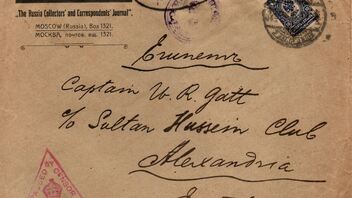 „The Russia Collectors' and Correspondents' Journal".
MOSCOW (Russia), Box 1321.
МОСКВА, почтов. ящ. 1321.
Captain W. R. Gatt
c/o Sultan Hussein Club
Alexandria
PASSED BY CENSOR